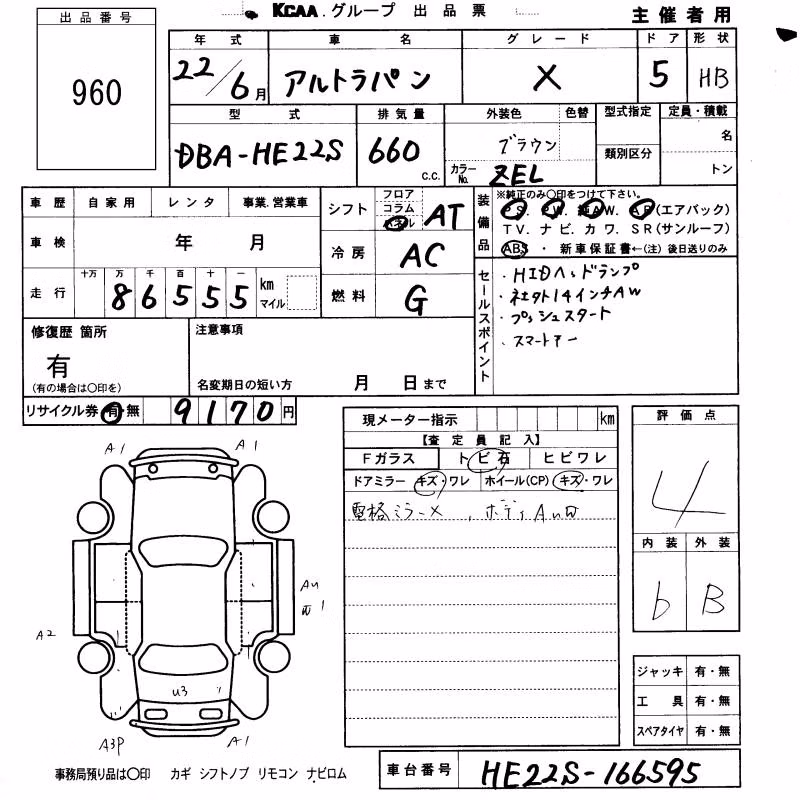 KCAA.グループ 出品票
主催者用
出品番号
960
年式 車名 グレード ドア 形状
22/6月 アルトラパン X 5 HB
型式 排気量 外装色 色替 型式指定 定員・積載
DBA-HE22S 660 c.c. ブラウン 類別区分 名
カラーNo. ZEL トン
車歴 自家用 レンタ 事業.営業車
車検 年 月
走行 十万 万 千 百 十 一
86555 km マイル
シフト フロア コラム パネル AT
冷房 AC
燃料 G
装備品 ※純正のみ〇印をつけて下さい。
PS. PW. 純AW. AB(エアバック)
TV. ナビ. カワ. SR(サンルーフ)
ABS ・ 新車保証書←(注) 後日送りのみ
セールスポイント
・HIDヘッドランプ
・社外14インチAW
・プッシュスタート
・スマートキー
修復歴 箇所
有
(有の場合は〇印を)
注意事項
名変期日の短い方 月 日まで
リサイクル券 有・無 9170円
現メーター指示 km
【査定員記入】
Fガラス トビ石 ヒビワレ
ドアミラー キズ・ワレ ホイール(CP) キズ・ワレ
電格ミラー× 、ボディAUW
評価点
4
内装 外装
b B
ジャッキ 有・無
工具 有・無
スペアタイヤ 有・無
A1 A1
A2
U3
A3P A1
事務局預り品は〇印 カギ シフトノブ リモコン ナビロム
車台番号 HE22S-166595